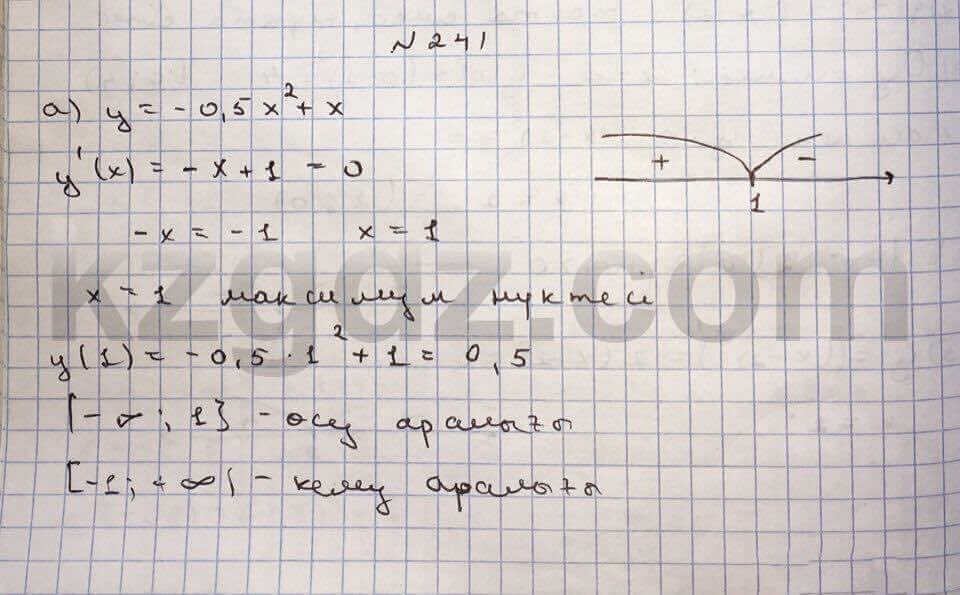 N 241
а) y = - 0,5 x² + x
y'(x) = - x + 1 = 0
+ -
1
- x = - 1 x = 1
x = 1 максимум нуктеі
y(1) = - 0,5 · 1² + 1 = 0,5
[- ∞; 1] - өсу аралығы
[-1; + ∞( - кему аралығы
kzgdz.com